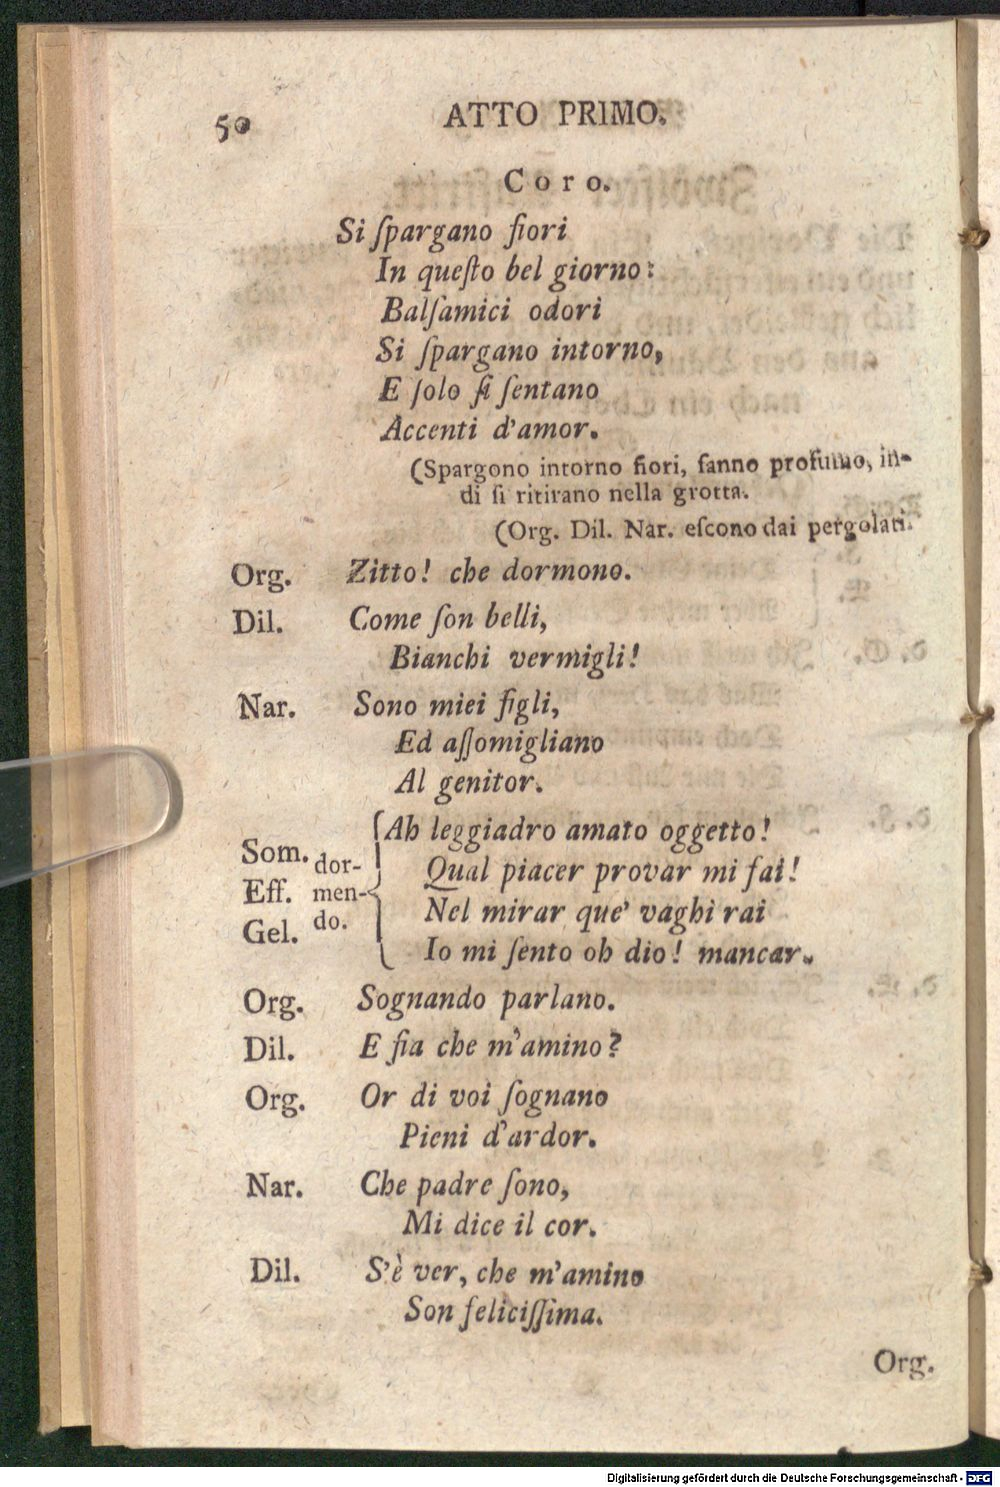 50 ATTO PRIMO.
Coro.
Si ſpargano fiori
In queſto bel giorno:
Balſamici odori
Si ſpargano intorno,
E ſolo ſi ſentano
Accenti d'amor.
(Spargono intorno fiori, fanno profumo, in-
di ſi ritirano nella grotta.
(Org. Dil. Nar. eſcono dai pergolati.
Org. Zitto! che dormono.
Dil. Come ſon belli,
Bianchi vermigli!
Nar. Sono miei figli,
Ed aſſomigliano
Al genitor.
Som. Eff. Gel. dor-men-do. {Ah leggiadro amato oggetto!
Qual piacer provar mi fai!
Nel mirar que' vaghi rai
Io mi ſento oh dio! mancar.
Org. Sognando parlano.
Dil. E fia che m'amino?
Org. Or di voi ſognano
Pieni d'ardor.
Nar. Che padre ſono,
Mi dice il cor.
Dil. S'è ver, che m'amino
Son feliciſſima.
Org.
Digitalisierung gefördert durch die Deutsche Forschungsgemeinschaft - DFG